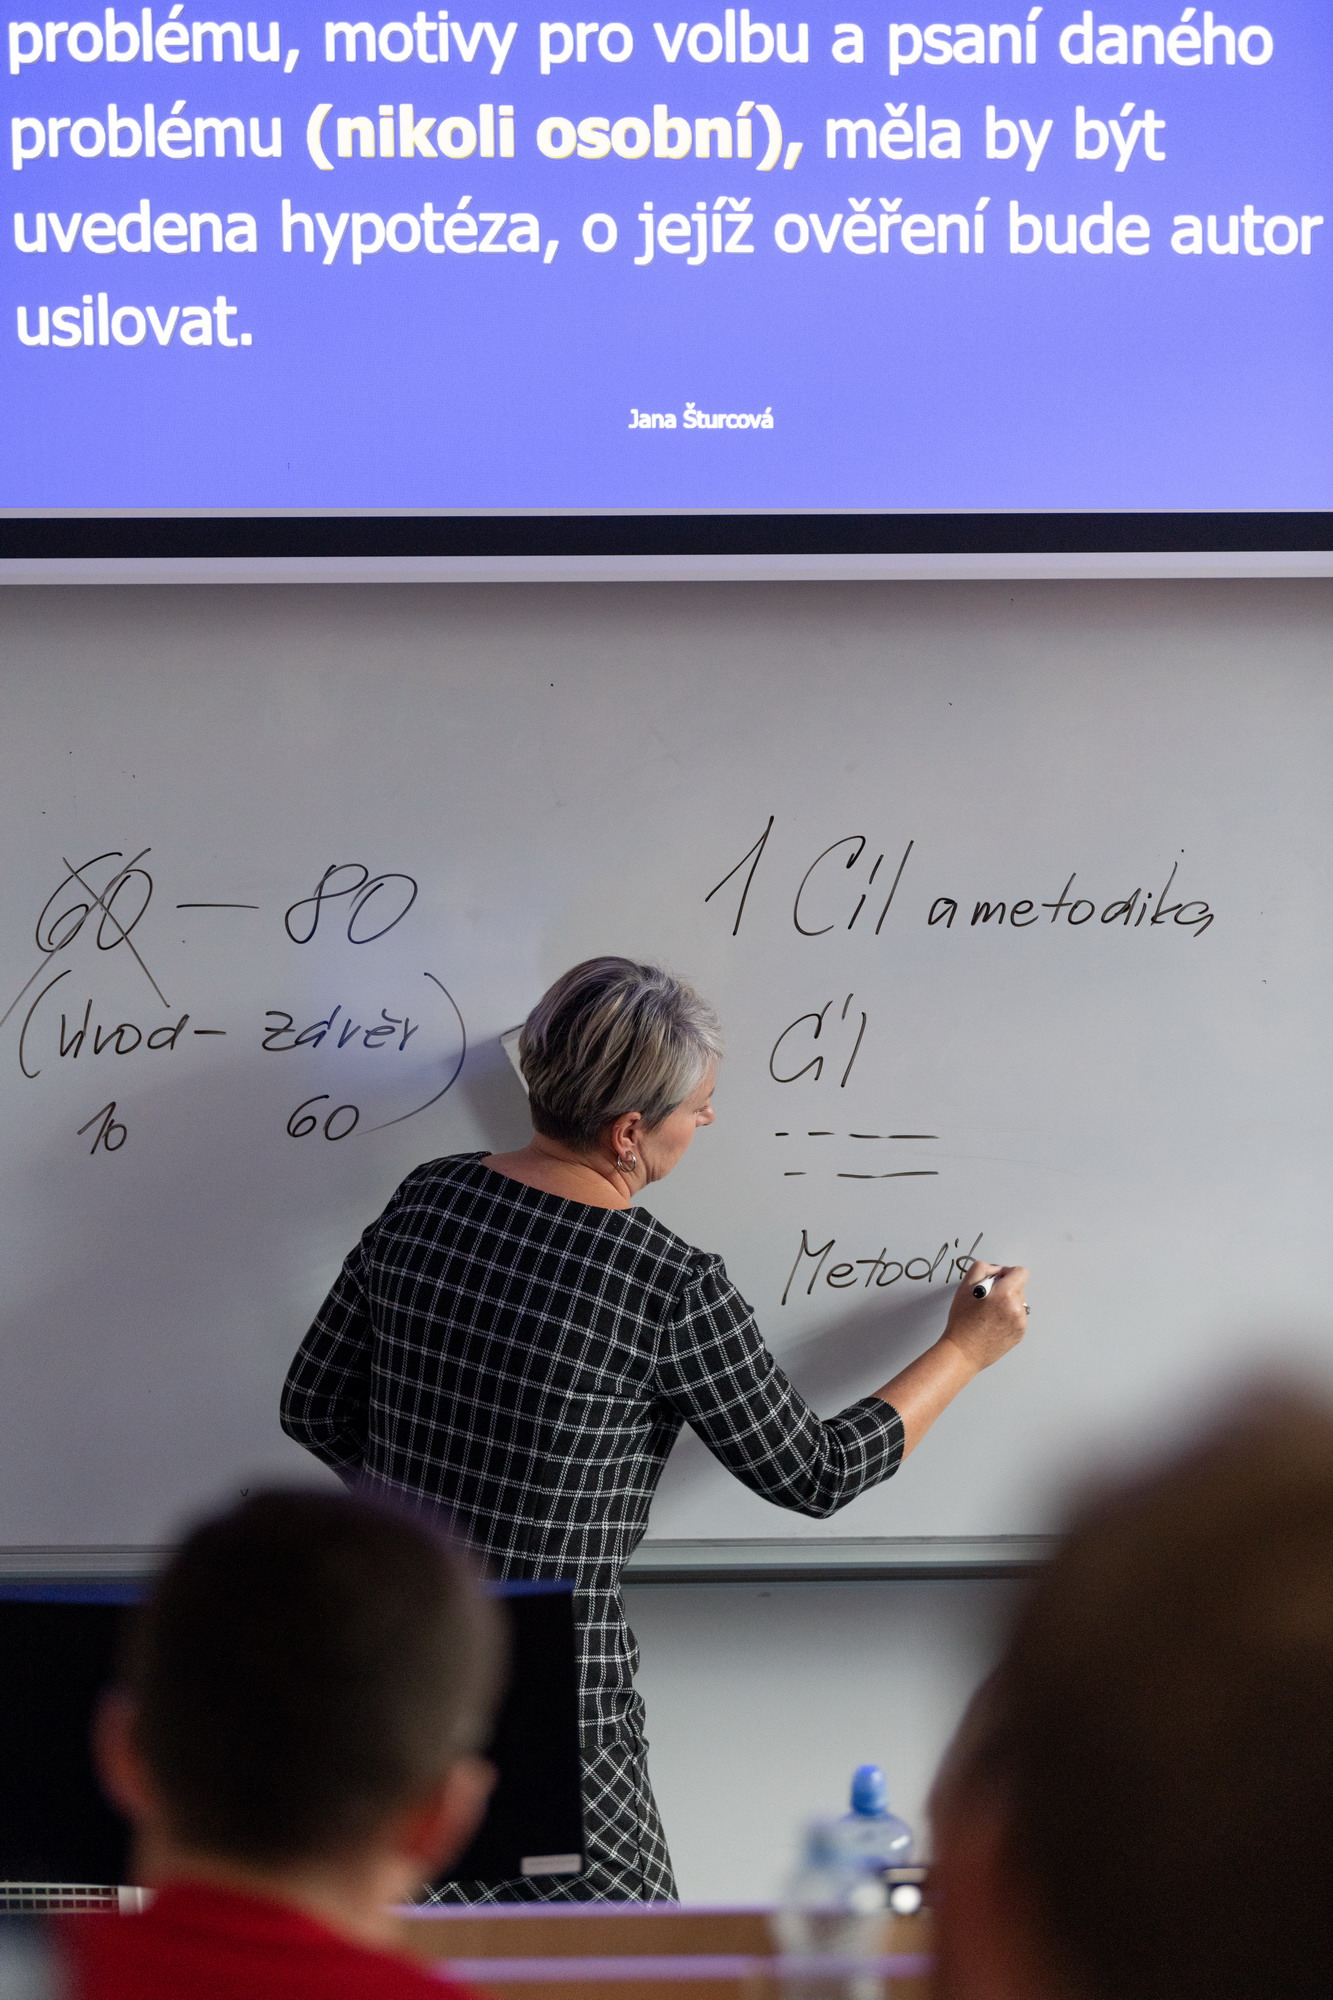 problému, motivy pro volbu a psaní daného
problému (nikoli osobní), měla by být
uvedena hypotéza, o jejíž ověření bude autor
usilovat.
Jana Šturcová
60 — 80
(úvod - závěr)
10 60
1 Cíl a metodika
Cíl
Metodik